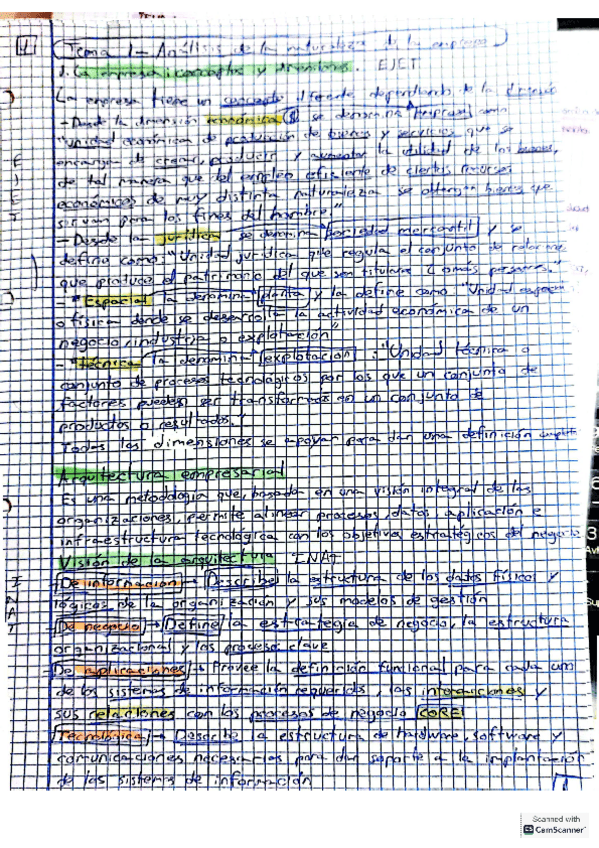 1
Tema 1 - Análisis de la naturaleza de la empresa
1. La empresa: conceptos y dimensiones. EJET
La empresa tiene un concepto diferente dependiendo de la dimensión
- Desde la dimensión económica ($) se denomina empresa como
"Unidad económica de producción de bienes y servicios que se
encargan de crear, producir y aumentar la utilidad de los bienes,
de tal manera que del empleo eficiente de ciertos recursos
económicos de muy distinta naturaleza se obtengan bienes que
sirvan para los fines del hombre."
- Desde la jurídica se denomina sociedad mercantil y se
define como: "Unidad jurídica que regula el conjunto de relaciones
que produce el patrimonio del que son titulares 1 o más personas."
- " Espacial la denomina planta y la define como "Unidad espacial
o física donde se desarrolla la actividad económica de un
negocio, industria o explotación"
- " técnica la denomina explotación: "Unidad técnica o
conjunto de procesos tecnológicos por los que un conjunto de
factores pueden ser transformados en un conjunto de
productos o resultados."
Todas las dimensiones se apoyan para dar una definición
Arquitectura empresarial
Es una metodología que, basada en una visión integral de las
organizaciones, permite alinear procesos, datos, aplicación e
infraestructura tecnológica con los objetivos estratégicos del negocio
Visión de la arquitectura INAT
- De información → Describe la estructura de los datos físicos y
lógicos de la organización y sus modelos de gestión
- De negocio → Define la estrategia de negocio, la estructura
organizacional y los procesos clave
De aplicaciones → Provee la definición funcional para cada uno
de los sistemas de información requeridos, las interacciones y
sus relaciones con los procesos de negocio CORE
- Tecnológica → Describe la estructura de hardware, software y
comunicaciones necesarias para dar soporte a la implantación
de los sistemas de información
1
E
J
E
T
I
N
A
T
6
3
Scanned with
CS CamScanner